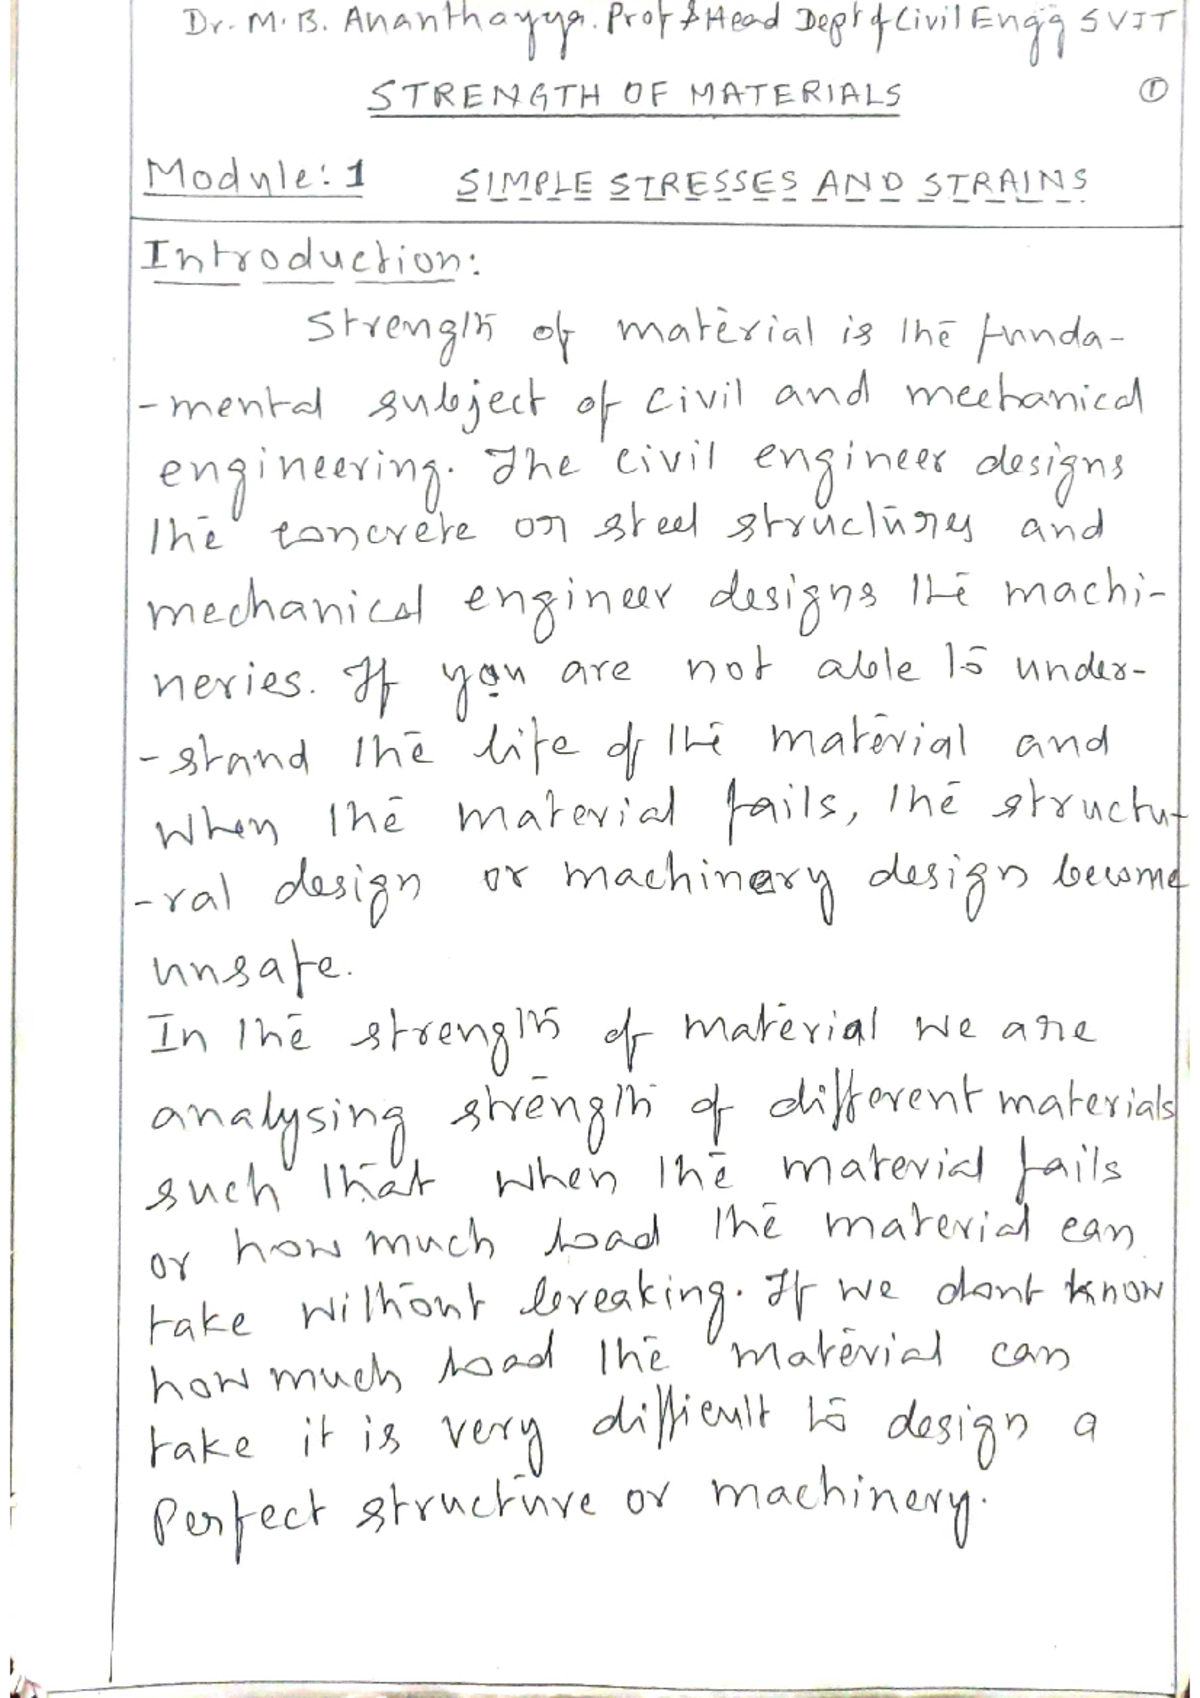 Dr. M. B. Ananthayya. Prof & Head Dept of Civil Engg SVIT
STRENGTH OF MATERIALS 1
Module: 1 SIMPLE STRESSES AND STRAINS
Introduction:
Strength of material is the funda-
-mental subject of civil and mechanical
engineering. The civil engineer designs
the concrete or steel structures and
mechanical engineer designs the machi-
neries. If you are not able to under-
-stand the life of the material and
when the material fails, the structu-
-ral design or machinery design become
unsafe.
In the strength of material we are
analysing strength of different materials
such that when the material fails
or how much load the material can
take without breaking. If we dont know
how much load the material can
take it is very difficult to design a
Perfect structure or machinery.